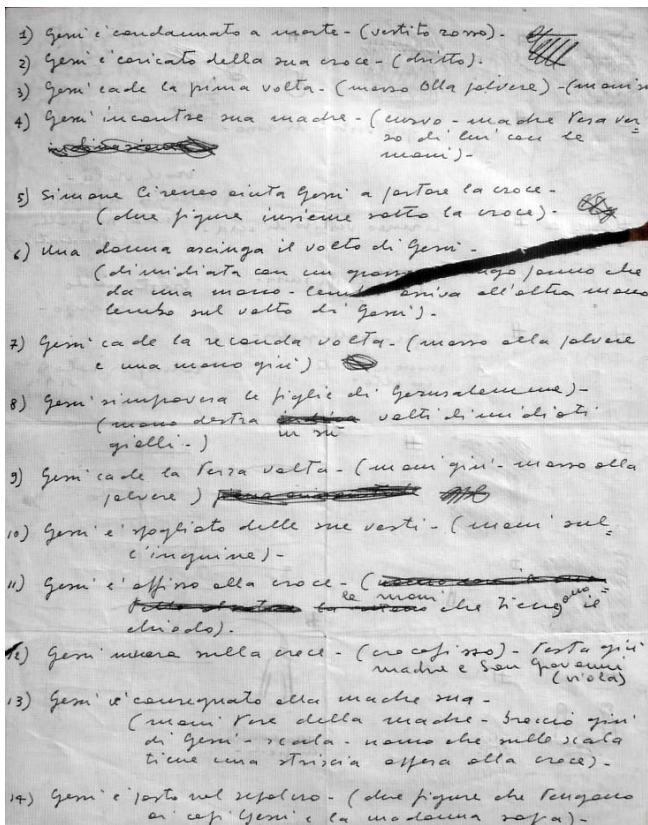 1) Gesù è condannato a morte - (vestito rosso).
2) Gesù è caricato della sua croce - (dritto).
3) Gesù cade la prima volta - (masso alla polvere) - (mani
4) Gesù incontra sua madre - (curvo - madre tesa ver=
so di lui con le
mani) -
5) Simone Cireneo aiuta Gesù a portare la croce -
(due figure insieme sotto la croce).
6) Una donna asciuga il volto di Gesù -
(dimidiata con un panno che
da una mano - arriva all'altra mano
lembo sul volto di Gesù).
7) Gesù cade la seconda volta - (masso alla polvere
e una mano giù)
8) Gesù rimprovera le figlie di Gerusalemme) -
(mano destra in su volti dimidiati
gialli -)
9) Gesù cade la terza volta - (mani giù - masso alla
polvere)
10) Gesù è spogliato delle sue vesti - (mani sul=
l'inguine) -
11) Gesù è affisso alla croce - (
le mani che tengono il
chiodo).
12) Gesù muore sulla croce - (crocefisso) - testa giù
madre e San Giovanni
(viola)
13) Gesù è consegnato alla madre sua -
(mani tese della madre - braccio giù
di Gesù - scala - uomo che sulla scala
tiene una striscia appesa alla croce) -
14) Gesù è posto nel sepolcro - (due figure che tengono
ai capi Gesù e la madonna sopra) -